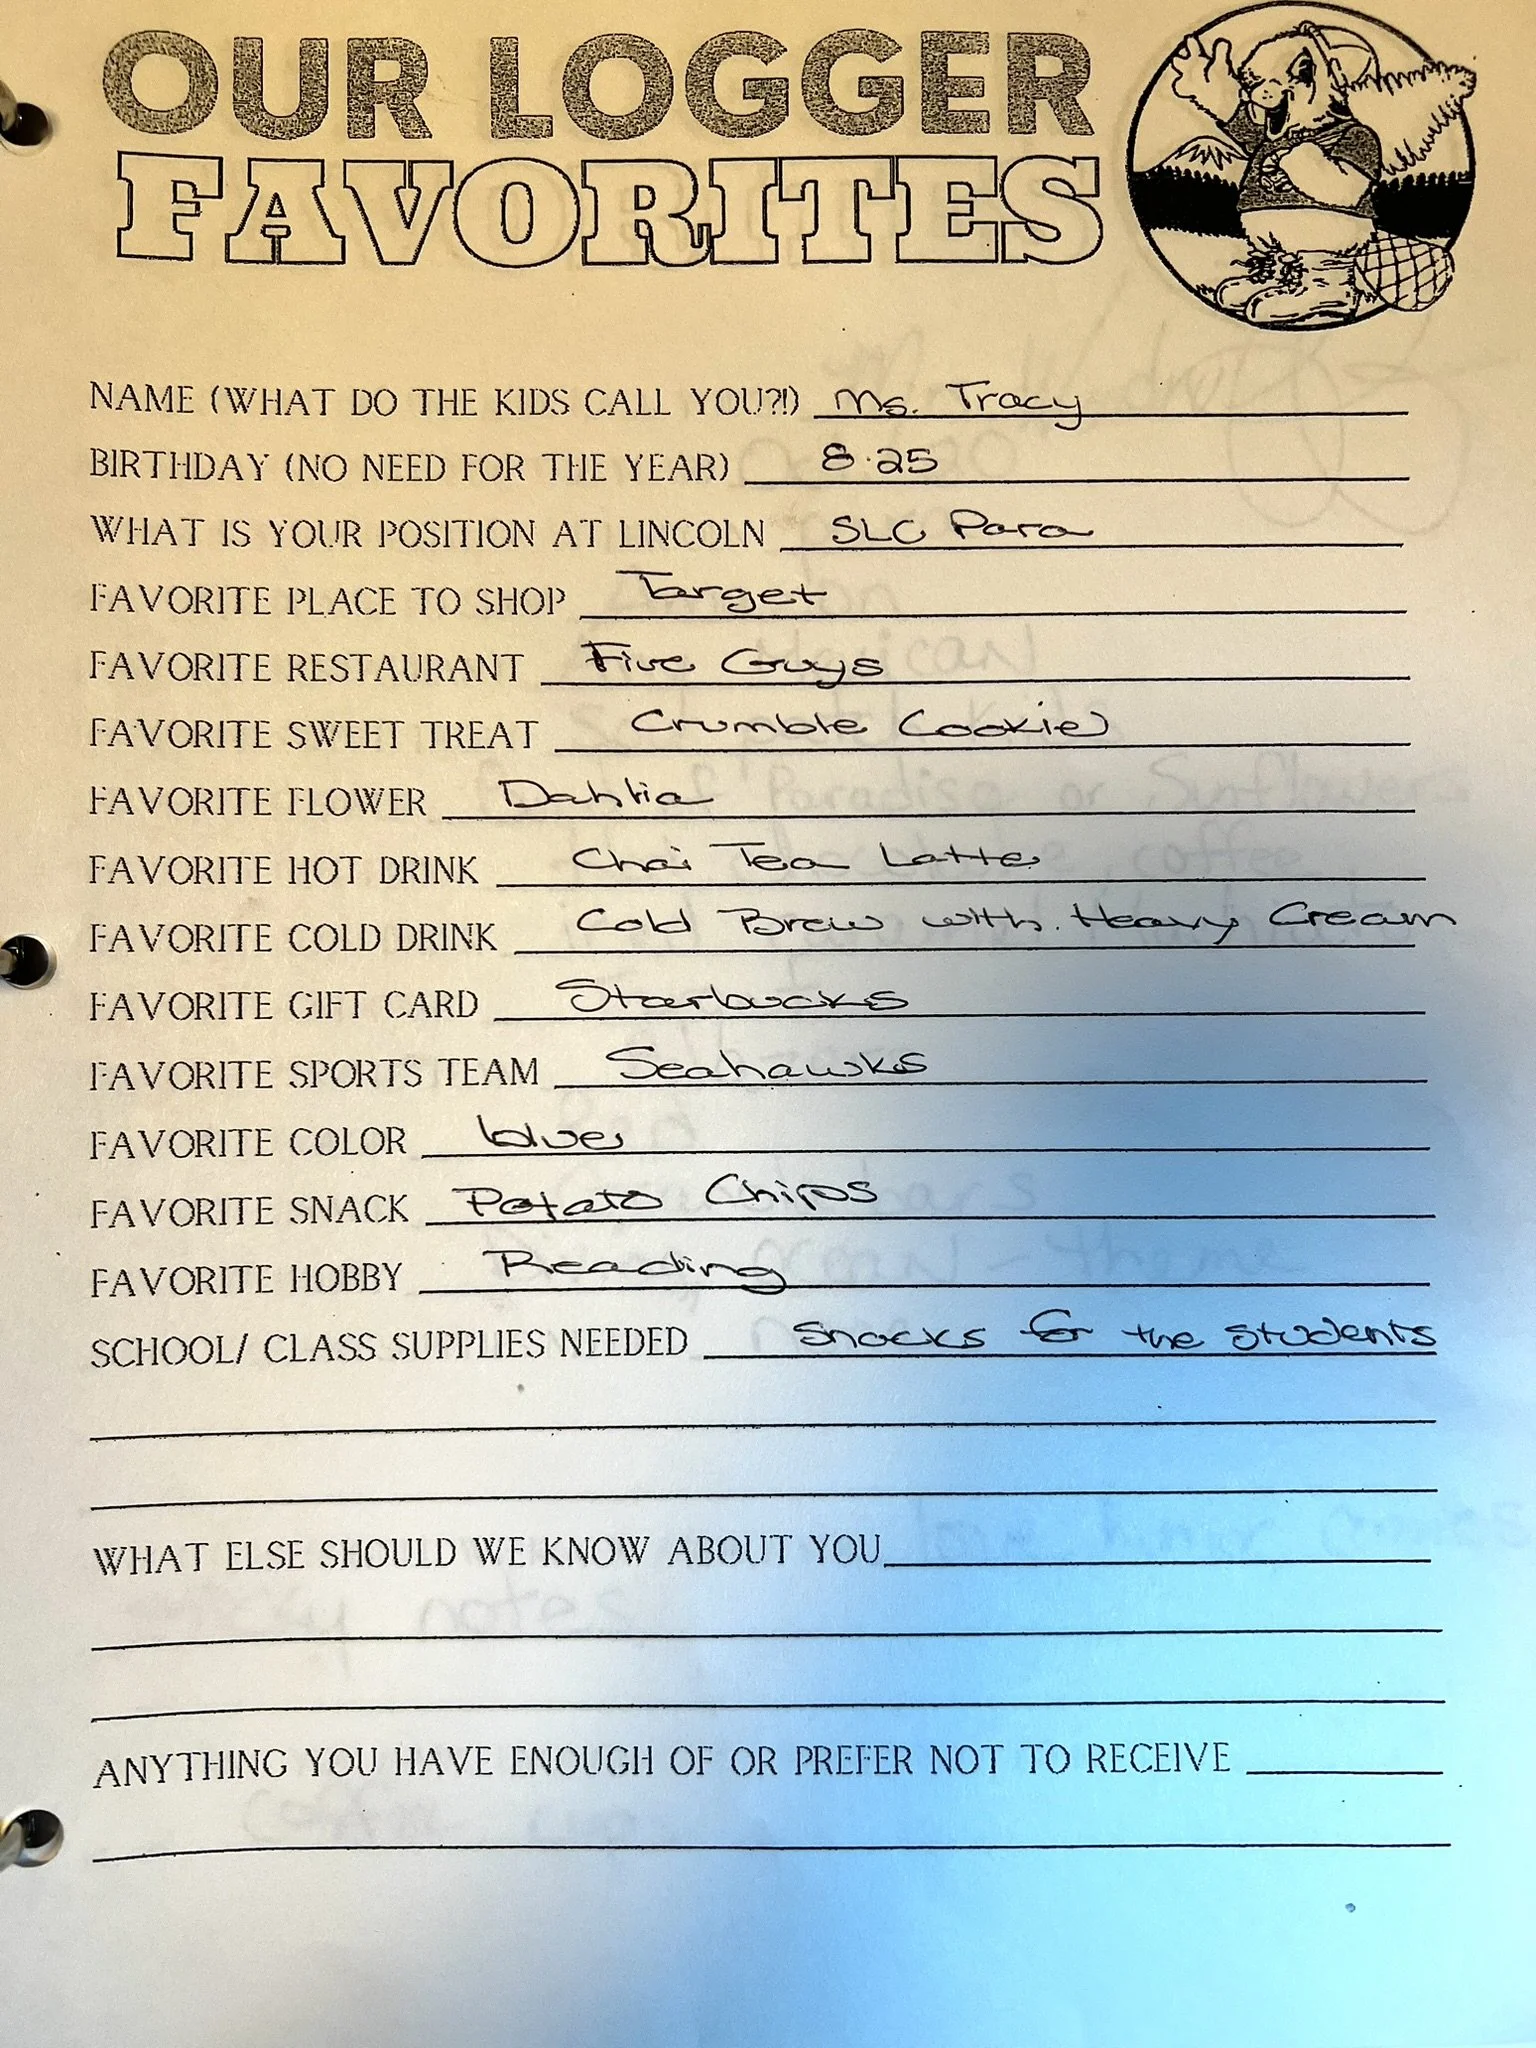 OUR LOGGER
FAVORITES
NAME (WHAT DO THE KIDS CALL YOU?!) Ms. Tracy
BIRTHDAY (NO NEED FOR THE YEAR) 8.25
WHAT IS YOUR POSITION AT LINCOLN SLC Para
FAVORITE PLACE TO SHOP Target
FAVORITE RESTAURANT Five Guys
FAVORITE SWEET TREAT Crumble Cookie)
FAVORITE FLOWER Dahlia
FAVORITE HOT DRINK Chai Tea Latte
FAVORITE COLD DRINK Cold Brew with Heavy Cream
FAVORITE GIFT CARD Starbucks
FAVORITE SPORTS TEAM Seahawks
FAVORITE COLOR blue
FAVORITE SNACK Potato Chips
FAVORITE HOBBY Reading
SCHOOL/ CLASS SUPPLIES NEEDED Snacks for the Students
WHAT ELSE SHOULD WE KNOW ABOUT YOU
ANYTHING YOU HAVE ENOUGH OF OR PREFER NOT TO RECEIVE